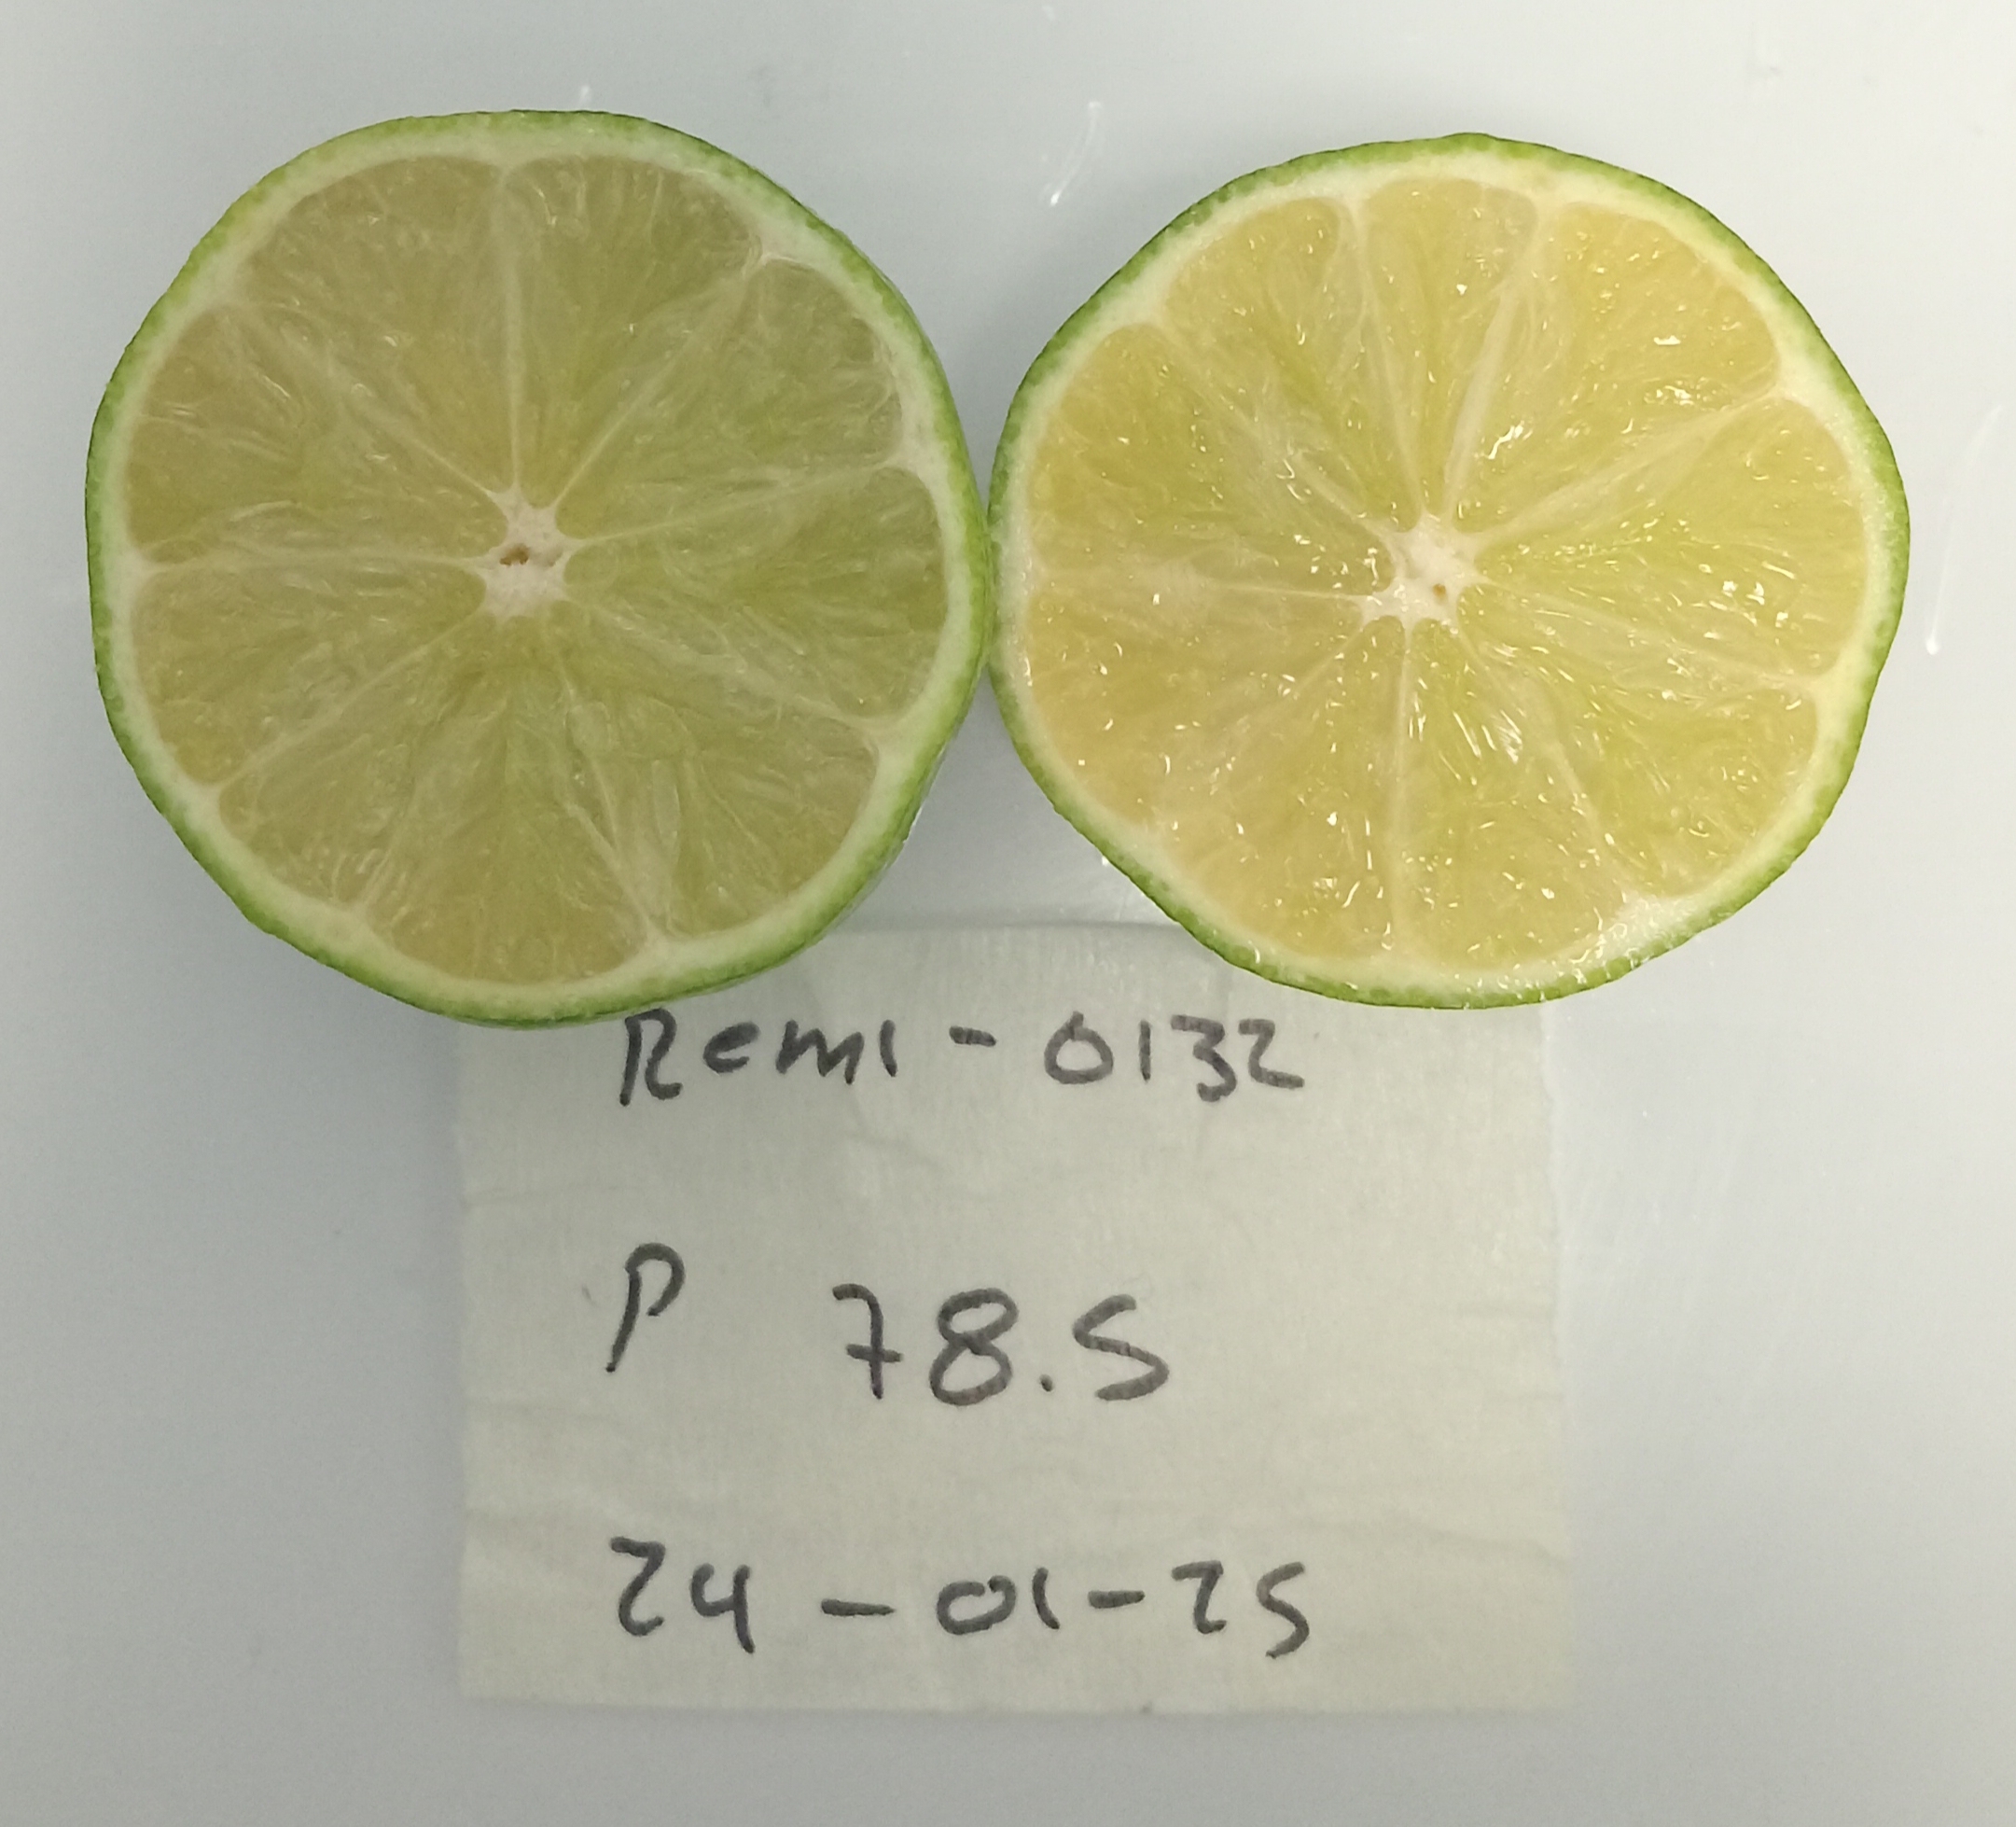 Remi - 0132
P 78.5
24-01-25